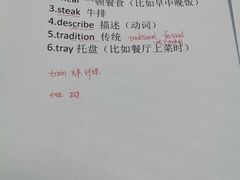 meal 一顿餐食（比如早中晚饭）
3.steak 牛排
4.describe 描述（动词）
5.tradition 传统 traditional festival
6.tray 托盘（比如餐厅上菜时）
train 火车 训练
tree 树